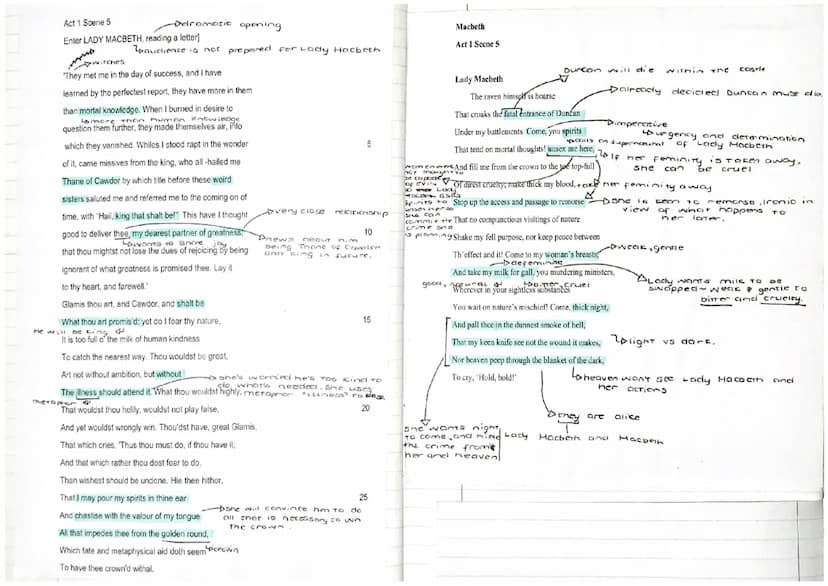 Act 1 Scene 5
↳dramatic opening
Enter LADY MACBETH, reading a letter]
↳audience is not prepared for Lady Macbeth
↳witches
'They met me in the day of success, and I have
learned by the perfectest report, they have more in them
than mortal knowledge. When I burned in desire to
↳more than human knowledge
question them further, they made themselves air, into
which they vanished. Whiles I stood rapt in the wonder 5
of it, came missives from the king, who all-hailed me
Thane of Cawdor by which title before these weird
sisters saluted me and referred me to the coming on of
time, with 'Hail, king that shalt be!' This have I thought
↳very close relationship
good to deliver thee, my dearest partner of greatness, 10
↳wants to share joy
↳news about him being Thane of Cawdor and king in future.
that thou mightst not lose the dues of rejoicing by being
ignorant of what greatness is promised thee. Lay it
to thy heart, and farewell.'
Glamis thou art, and Cawdor, and shalt be
What thou art promis'd: yet do I fear thy nature, 15
He will be king
It is too full o' the milk of human kindness
To catch the nearest way. Thou wouldst be great,
Art not without ambition, but without
↳she's worried he's too kind to
do what's needed. She uses
metaphor "illness" to
The illness should attend it. What thou wouldst highly,
metaphor
That wouldst thou holily; wouldst not play false, 20
And yet wouldst wrongly win. Thou'dst have, great Glamis,
That which cries, 'Thus thou must do, if thou have it;
And that which rather thou dost fear to do,
Than wishest should be undone. Hie thee hither,
That I may pour my spirits in thine ear 25
And chastise with the valour of my tongue
↳she will convince him to do
all that is necessary to win
the crown.
All that impedes thee from the golden round,
↳crown
Which fate and metaphysical aid doth seem
To have thee crown'd withal.
Macbeth
Act 1 Scene 5
Duncan will die within the castle
Lady Macbeth
The raven himself is hoarse
↳already decided Duncan must die.
That croaks the fatal entrance of Duncan
↳imperative
Under my battlements. Come, you spirits
↳urgency and determination
of Lady Macbeth
↳calls on supernatural
That tend on mortal thoughts! unsex me here,
↳If her feminity is taken away,
she can be cruel
And fill me from the crown to the toe top-full
Of direst cruelty; make thick my blood,
↳take her feminity away
Stop up the access and passage to remorse
↳She is seen to remorse, ironic in
view of what happens to
her later.
That no compunctious visitings of nature
Shake my fell purpose, nor keep peace between
↳weak, gentle
Th' effect and it! Come to my woman's breasts,
↳defeminise
And take my milk for gall, you murdering ministers,
good, natural
↳bitter, cruel
↳Lady wants milk to be
swapped weak & gentle to
bitter and cruelty.
Wherever in your sightless substances
You wait on nature's mischief! Come, thick night,
And pall thee in the dunnest smoke of hell,
That my keen knife see not the wound it makes,
↳light vs dark.
Nor heaven peep through the blanket of the dark,
↳heaven won't see Lady Macbeth and
her actions
To cry, 'Hold, hold!'
↳they are alike
Lady Macbeth and Macbeth
She wants night
to come, and hide
the crime from
her and heaven